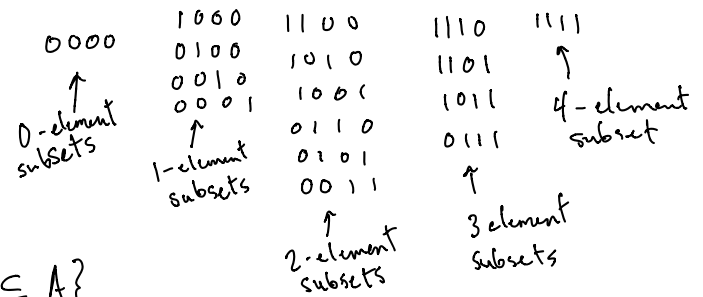 0000
0-element
subsets
1000
0100
0010
0001
1-element
subsets
1100
1010
1001
0110
0101
0011
2-element
subsets
1110
1101
1011
0111
3 element
subsets
1111
4-element
subset
⊆ A}